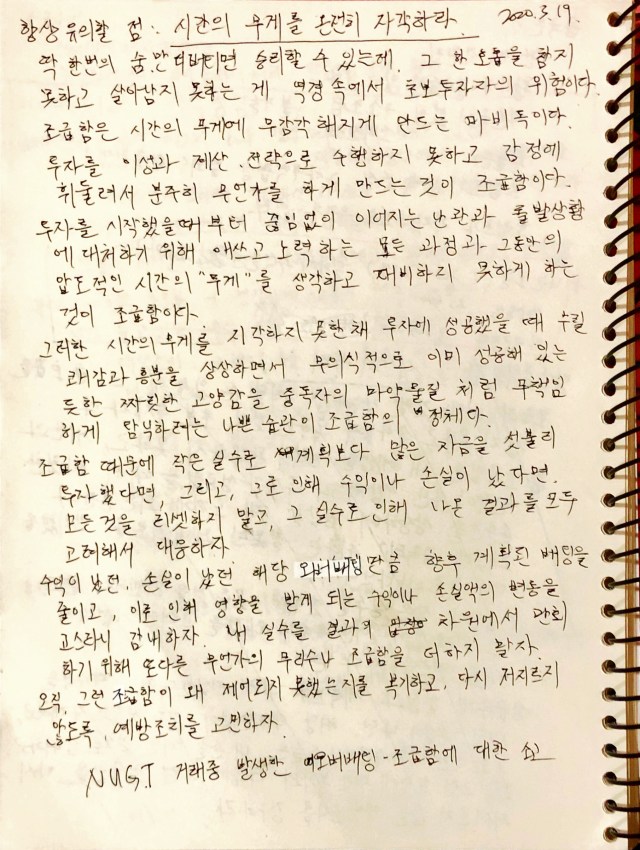 항상 유의할 점: 시간의 무게를 온전히 자각하라. 2020.3.19.
딱 한번의 숨만 더버티면 승리할 수 있는데. 그 한 호흡을 참지
못하고 살아남지 못하는 게 역경 속에서 초보투자자의 위험이다.
조급함은 시간의 무게에 무감각 해지게 만드는 마비독이다.
투자를 이성과 계산. 전략으로 수행하지 못하고 감정에
휘둘려서 분주히 무언가를 하게 만드는 것이 조급함이다.
투자를 시작했을때부터 끊임없이 이어지는 난관과 돌발상황
에 대처하기 위해 애쓰고 노력하는 모든 과정과 그동안의
압도적인 시간의 "무게"를 생각하고 대비하지 못하게 하는
것이 조급함이다.
그러한 시간의 무게를 지각하지 못한채 투자에 성공했을 때 누릴
쾌감과 흥분을 상상하면서 무의식적으로 이미 성공해 있는
듯한 짜릿한 고양감을 중독자의 마약물질 처럼 무책임
하게 탐닉하려는 나쁜 습관이 조급함의 정체다.
조급함 때문에 작은 실수로 계획보다 많은 자금을 섣불리
투자했다면, 그리고, 그로 인해 수익이나 손실이 났다면.
모든것을 리셋하지 말고, 그 실수로 인해 나온 결과를 모두
고려해서 대응하자.
수익이 났던. 손실이 났던 해당 오버배팅만큼 향후 계획된 배팅을
줄이고, 이로 인해 영향을 받게 되는 수익이나 손실액의 변동을
고스란히 감내하자. 내 실수를 결과의 차원에서 만회
하기 위해 또다른 무언가의 무리수나 조급함을 더하지 말자.
오직, 그런 조급함이 왜 제어되지 못했는지를 복기하고, 다시 저지르지
않도록, 예방조치를 고민하자.
NUGT 거래중 발생한 오버배팅 - 조급함에 대한 소고